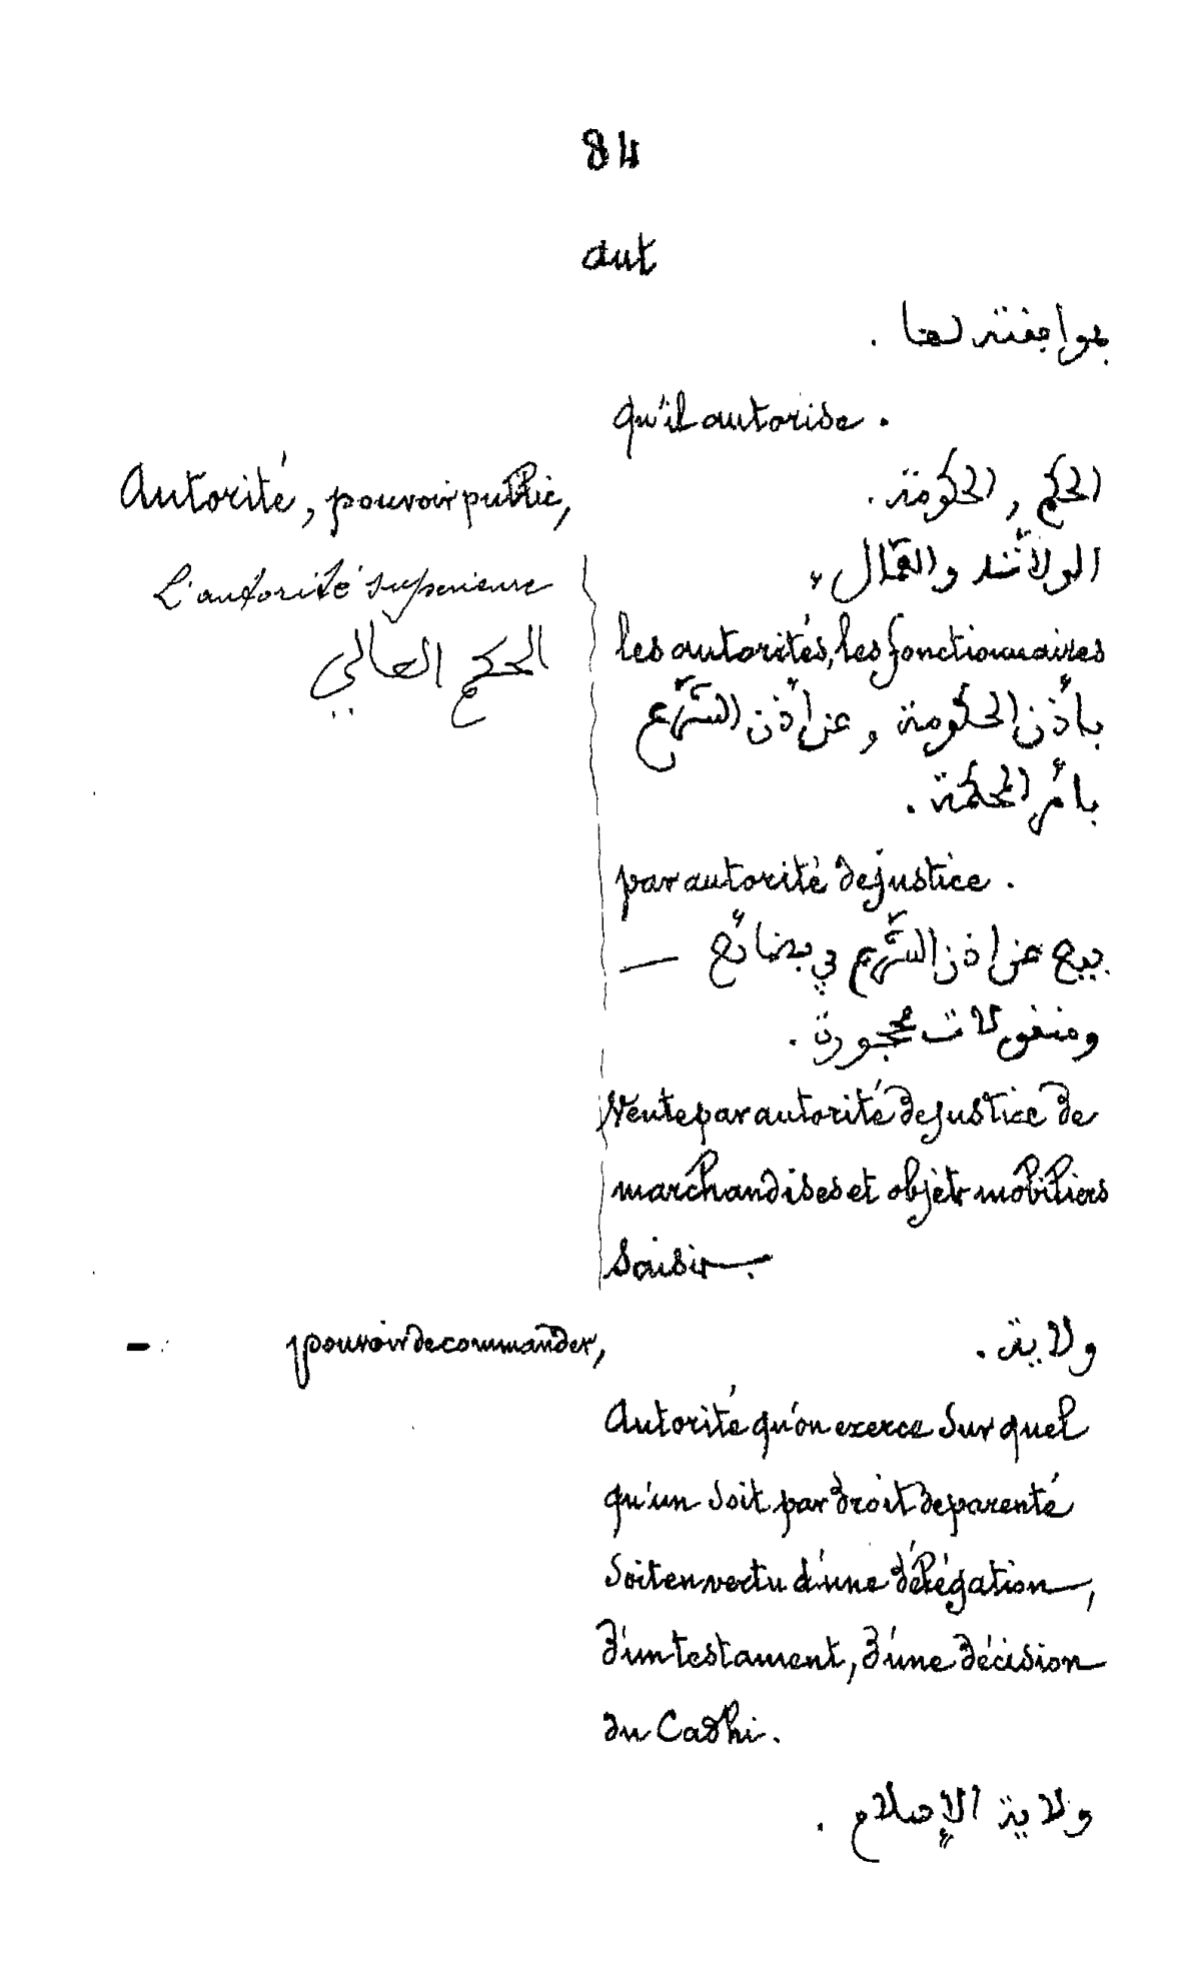 84
aut
بموافقته لها .
qu'il autorise .
Autorité, pouvoir public,
الحكم , الحكومة .
الولاة والعمّال ،
L'autorité supérieure
les autorités, les fonctionnaires
الحكم العالي
بأذن الحكومة , عن أذن الشّرع
بأمر المحكمة .
par autorité de justice .
بيع عن اذن الشّرع في بضائع —
ومنقولات محجورة .
Vente par autorité de justice de
marchandises et objets mobiliers
saisir .
— pouvoir de commander,
ولاية .
Autorité qu'on exerce sur quel
qu'un soit par droit de parenté
soit en vertu d'une délégation,
d'un testament, d'une décision
du Cadhi .
ولاية الإصلاح .